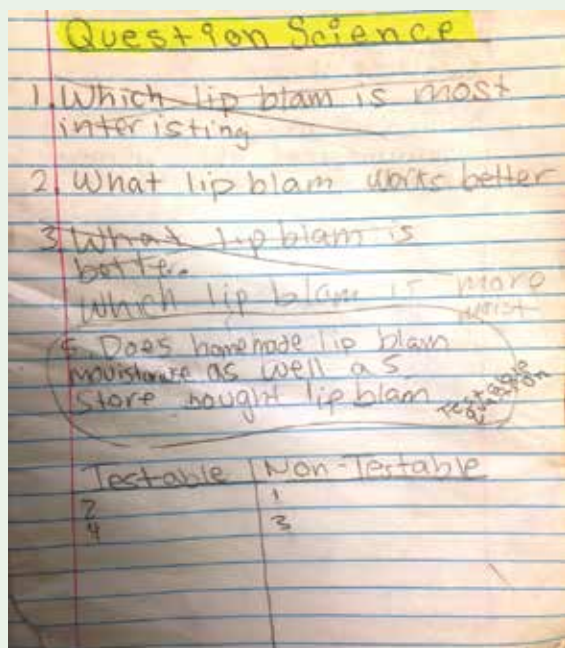 Question Science
1. Which lip blam is most
interisting
2. What lip blam works better
3. What lip blam is
better
Which lip blam is more
moist
5. Does homemade lip blam
as well as
store bought lip blam
Testable
question
Testable | Non-Testable
2 1
4 3